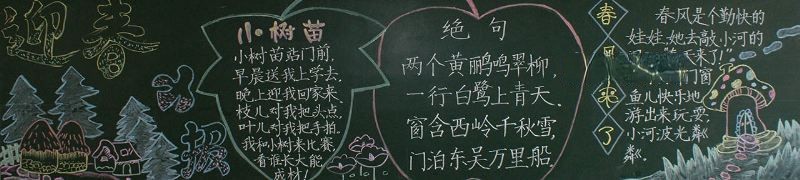 迎春
小报
小树苗
小树苗站门前,
早晨送我上学去.
晚上迎我回家来.
枝儿对我把头点,
叶儿对我把手拍.
我和小树来比赛
看谁长大能
成材!
绝句
两个黄鹂鸣翠柳,
一行白鹭上青天.
窗含西岭千秋雪,
门泊东吴万里船.
春回来了
春风是个勤快的
娃娃,她去敲小河的
天来了!
门窗
鱼儿快乐地
游出来玩耍.
小河波光粼
粼.